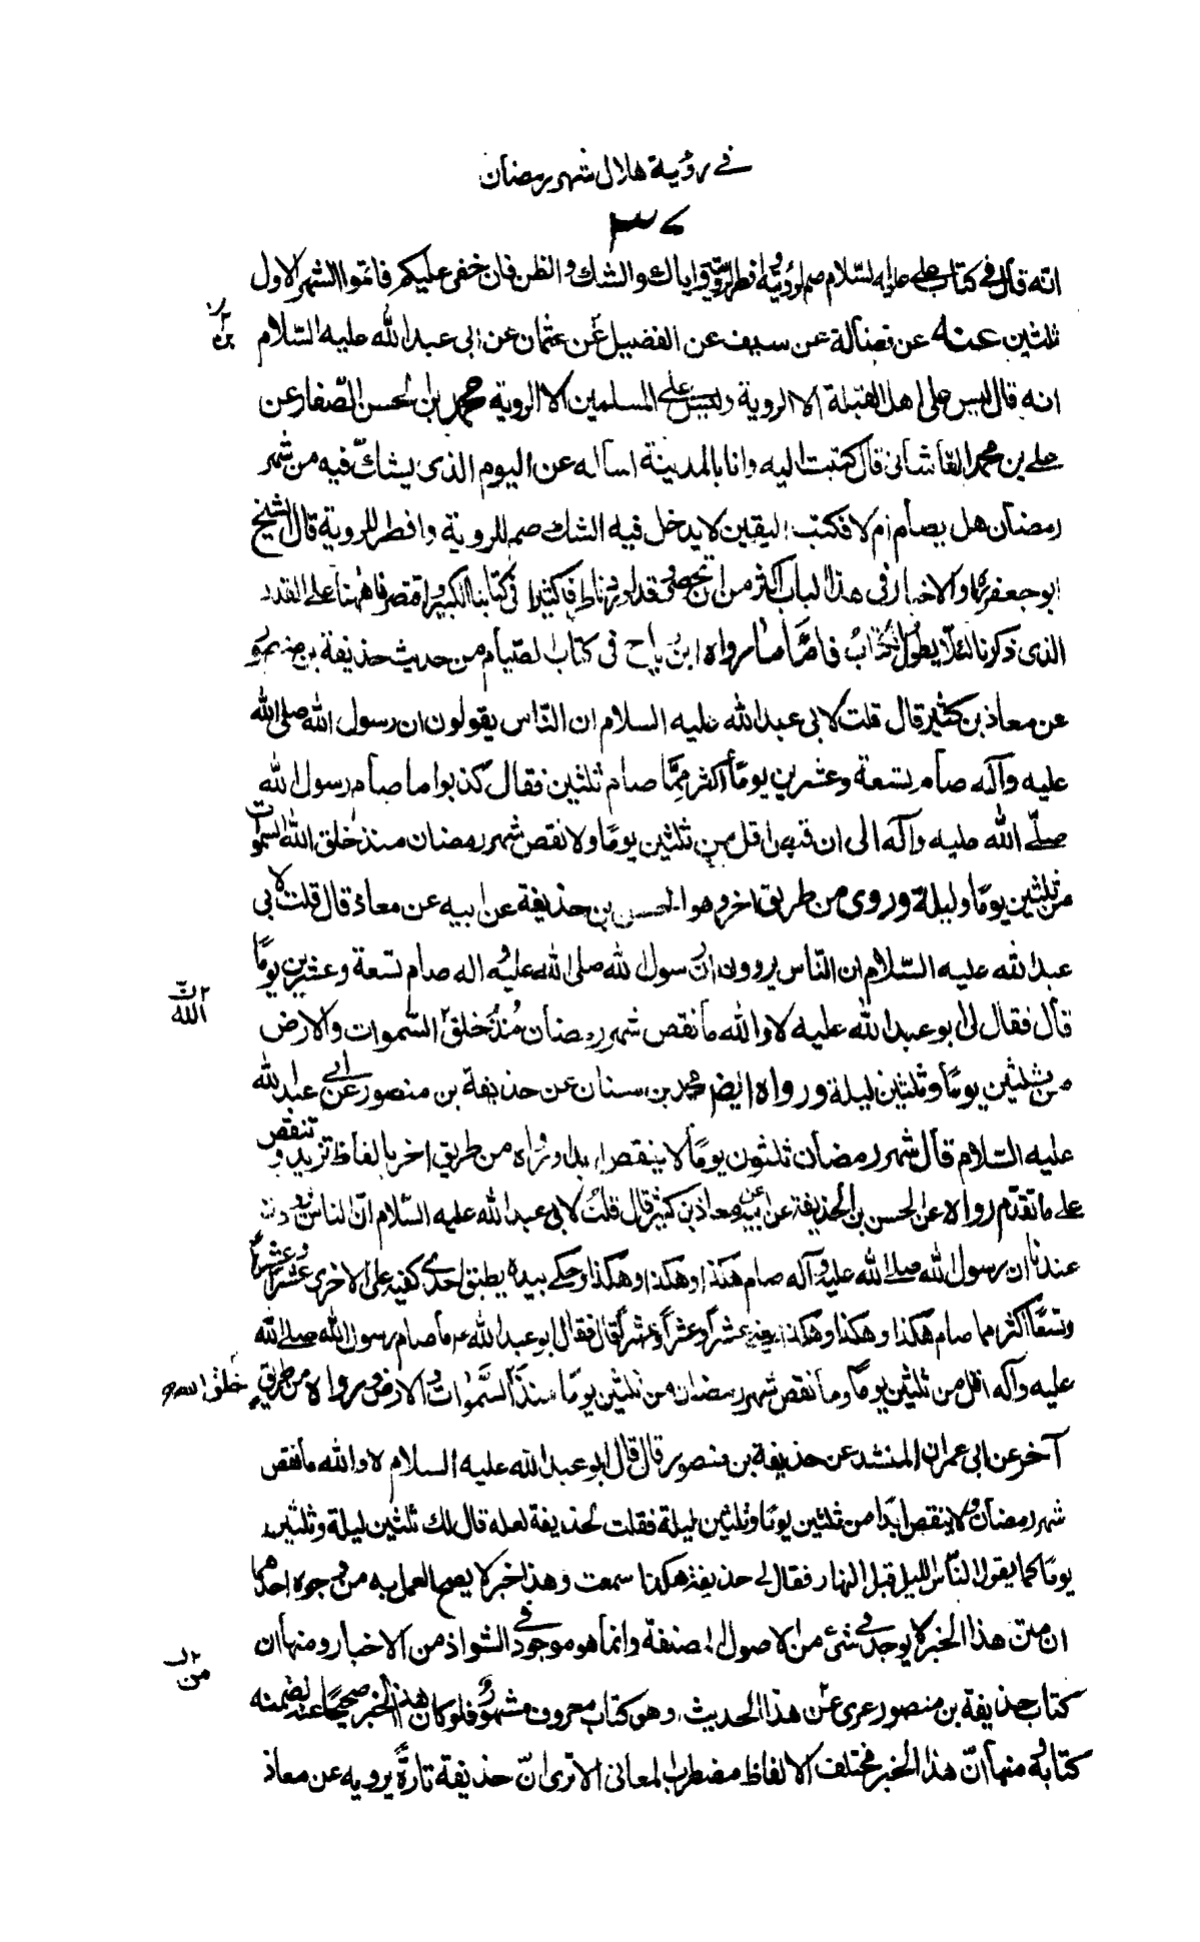 في رؤية هلال شهر رمضان
٣٧
انه قال في كتاب علي عليه السّلام صم لرؤيته وافطر لرؤيته واياك والشك والظن فان خفى عليكم فاتموا الشهر الاول
ثلثين عنه عن فضالة عن سيف عن الفضيل عن عثمان عن ابى عبدالله عليه السّلام
بن
انه قال ليس على اهل القبلة الا الروية وليس على المسلمين الا الروية محمد بن الحسن الصّفار عن
على بن محمد القاشانى قال كتبت اليه وانا بالمدينة اساله عن اليوم الذى يشكّ فيه من شهر
رمضان هل يصام ام لا فكتب اليقين لا يدخل فيه الشك صم للروية وافطر للروية قال الشيخ
ابو جعفر والاخبار فى هذا الباب اكثر من ان تحصى وقد اوردنا طرفا كثيرا فى كتابنا الكبير واقتصرنا ههنا على القدر
الذى ذكرنا لئلا يطول الكتاب فامّا ما رواه ابن رباح فى كتاب الصّيام من حديث حذيفة بن منصور
عن معاذ بن كثير قال قلت لابى عبدالله عليه السلام ان النّاس يقولون ان رسول الله صلى الله
عليه وآله صام تسعة وعشرين يومًا اكثر ممّا صام ثلثين فقال كذبوا ما صام رسول الله
صلّى الله عليه وآله الى ان قبض اقل من ثلثين يومًا ولا نقص شهر رمضان منذ خلق الله السموات
من ثلثين يومًا وليلة وروى من طريق اخر وهو الحسن بن حذيفة عن ابيه عن معاذ قال قلت لابى
عبدالله عليه السّلام ان النّاس يروون ان رسول الله صلى الله عليه واله صام تسعة وعشرين يومًا
قال فقال لى ابو عبدالله عليه لا والله ما نقص شهر رمضان مُنذُ خلق السّموات والارض
الله
من ثلثين يومًا وثلثين ليلة ورواه ايضم محمد بن سنان عن حذيفة بن منصور عن ابى عبدالله
عليه السّلام قال شهر رمضان ثلثون يومًا لا ينقص ابدا ورواه من طريق اخر بالفاظ تزيد وتنقص
على ما تقدّم رواه عن الحسن بن الحذيفة عن ابيه عن معاذ بن كثير قال قلتُ لابى عبدالله عليه السّلام انّ الناس يروون
عندنا ان رسول الله صلى الله عليه وآله صام هكذا وهكذا وهكذا وحكى بيده يطبق احدى كفيه على الاخرى عشرًا وعشرًا
وتسعًا اكثر مما صام هكذا وهكذا وهكذا يعنى عشرًا وعشرًا وعشرًا قال فقال ابو عبدالله عم ما صام رسول الله صلى الله
عليه وآله اقل من ثلثين يومًا وما نقص شهر رمضان من ثلثين يومًا منذ السَّموات والارض ورواه من طريقٍ
خلق الله
آخر عن ابى عمران المنشد عن حذيفة بن منصور قال قال ابو عبدالله عليه السلام لا والله ما نقص
شهر رمضان ولا ينقص ابدًا من ثلثين يومًا وثلثين ليلة فقلت لحذيفة لعله قال لك ثلثين ليلة وثلثين
يومًا كما يقول النّاس الليل قبل النهار فقال لى حذيفة هكذا سمعت وهذا خبر لا يصح العمل به من وجوه احدها
ان متن هذا الخبر لا يوجد فى شئ من الاصول المصنفة وانما هو موجود فى الشواذ من الاخبار ومنها ان
من
كتاب حذيفة بن منصور عرى عن هذا الحديث وهى كتاب معروف مشهور فلو كان هذا الخبر صحيحًا عنه لضمنه
كتابه ومنها انّ هذا الخبر مختلف الالفاظ مضطرب المعانى الا ترى انّ حذيفة تارةً يرويه عن معاذ